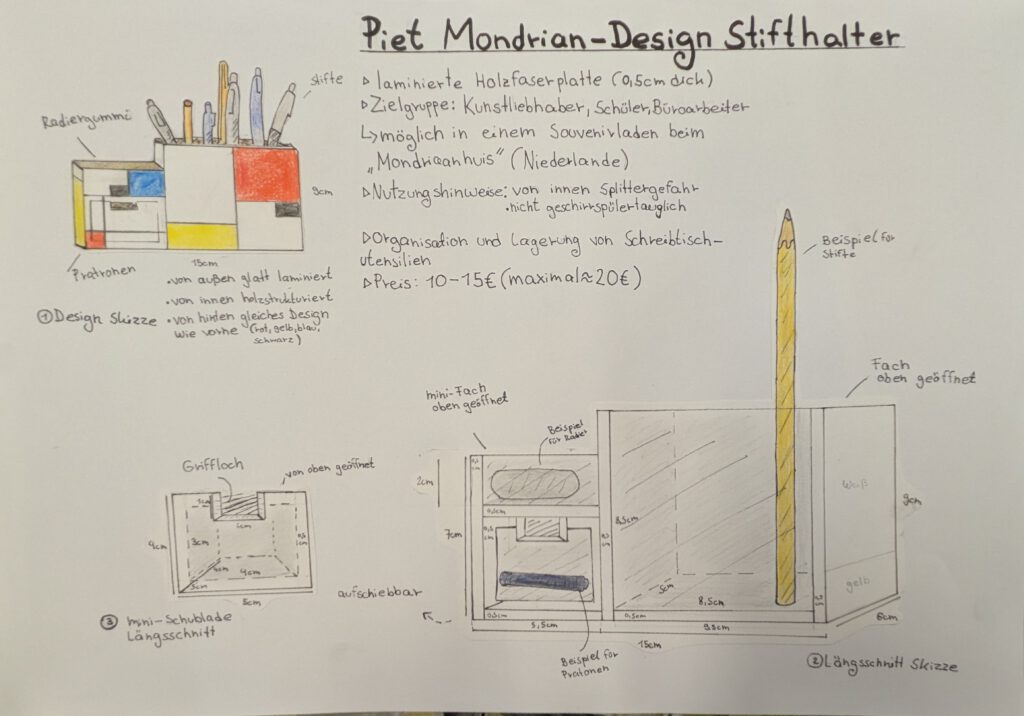 Piet Mondrian-Design Stifthalter
▹ laminierte Holzfaserplatte (0,5cm dick)
▹ Zielgruppe: Kunstliebhaber, Schüler, Büroarbeiter
↳ möglich in einem Souvenirladen beim
„Mondriaanhuis" (Niederlande)
▹ Nutzungshinweise: von innen Splittergefahr
• nicht geschirrspülertauglich
▹ Organisation und Lagerung von Schreibtisch-
utensilien
▹ Preis: 10-15€ (maximal ≈ 20€)
Stifte
Radiergummi
9cm
15cm
Pratronen
• von außen glatt laminiert
• von innen holzstrukturiert
• von hinten gleiches Design
wie vorne (rot, gelb, blau,
schwarz)
① Design Skizze
Beispiel für
Stifte
Fach
oben geöffnet
mini-Fach
oben geöffnet
Beispiel
für Radier
2cm
7cm
0,5cm
8,5cm
5cm
8,5cm
weiß
gelb
9cm
6cm
0,5cm
0,5cm
5,5cm
9,5cm
15cm
aufschiebbar
Beispiel für
Pratonen
② Längsschnitt Skizze
Griffloch
von oben geöffnet
1cm
4cm
3cm
4cm
4cm
5cm
5cm
③ mini-Schublade
Längsschnitt